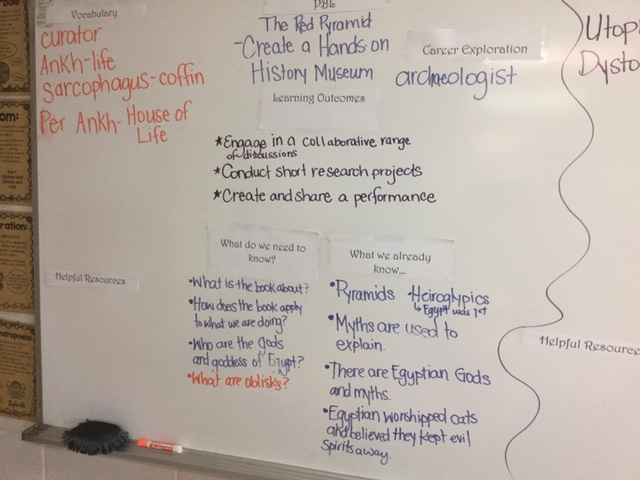 Vocabulary
curator
Ankh-life
Sarcophagus-coffin
Per Ankh- House of
Life
PBL
The Red Pyramid
-Create a Hands on
History Museum
Career Exploration
archaeologist
Learning Outcomes
*Engage in a collaborative range
of discussions
*Conduct short research projects
*Create and share a performance
What do we need to
know?
•What is the book about?
•How does the book apply
to what we are doing?
•Who are the gods
and goddess of Egypt?
•What are oblisky?
What we already
know...
•Pyramids •Heiroglypics
↳ Egypt was 1st
•Myths are used to
explain.
•There are Egyptian Gods
and myths.
•Egyptian worshipped cats
and believed they kept evil
spirits away.
Helpful Resources
Utopi
Dysto
Helpful Resource
om:
ration: